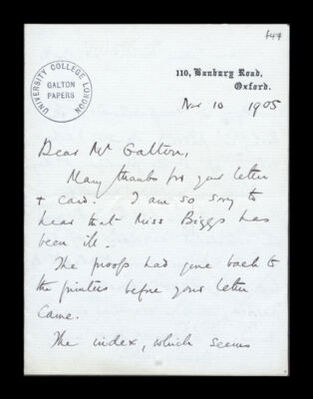 147
UNIVERSITY COLLEGE LONDON
GALTON
PAPERS
110, Banbury Road,
Oxford.
Nov 10 1905
Dear Mr Galton,
Many thanks for your letter
+ card. I am so sorry to
hear that Miss Biggs has
been ill.
The proofs had gone back to
the printers before your letter
came.
The index, which seems